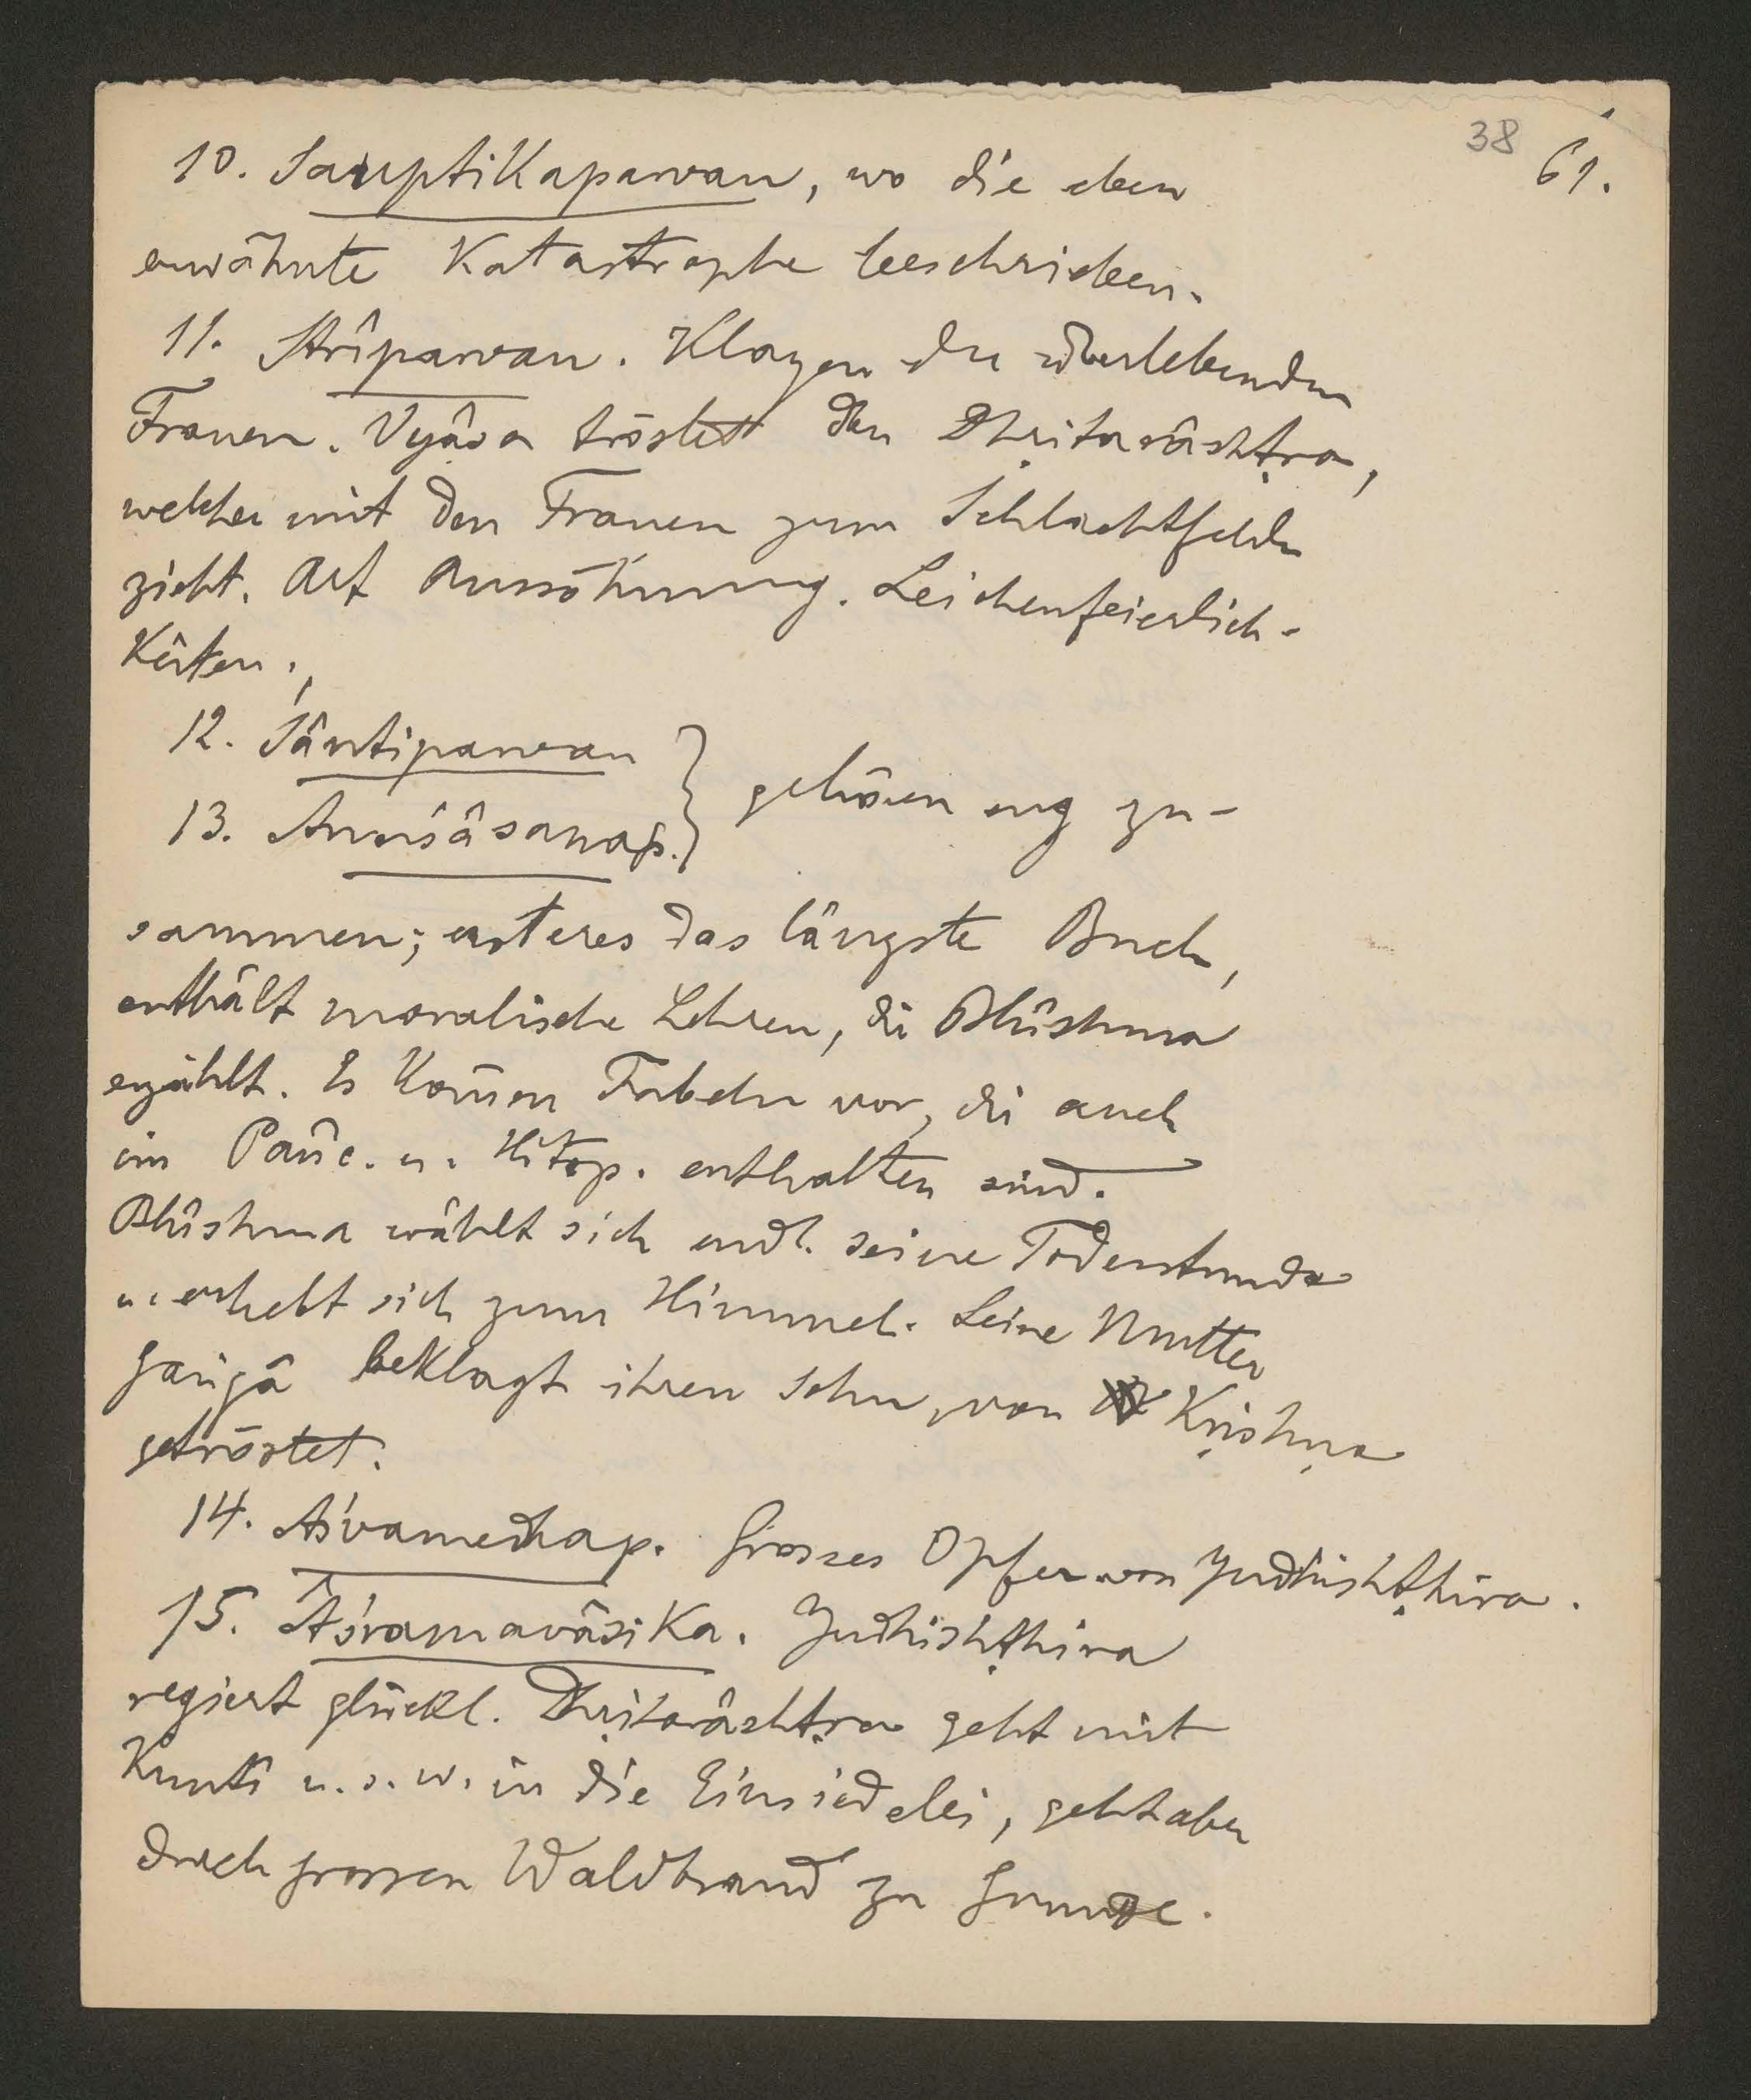 38 61.
10. Sauptikaparvan, wo die eben
erwähnte Katastrophe beschrieben.
11. Strîparvan. Klagen der überlebenden
Frauen. Vyâsa tröstet den Dhṛitarâshṭra,
welcher mit den Frauen zum Schlachtfelde
zieht. Art Aussöhnung. Leichenfeierlich-
keiten.
12. Śântiparvan
13. Anuśâsanap. } gehören eng zu-
sammen; ersteres das längste Buch,
enthält moralische Lehren, die Bhîshma
erzählt. Es kom̄en Fabeln vor, die auch
im Pañc. u. Hitop. enthalten sind.
Bhîshma wählt sich endl. seine Todesstunde
u. erhebt sich zum Himmel. Seine Mutter
Gaṅgâ beklagt ihren Sohn, von Kṛishṇa
getröstet.
14. Aśvamedhap. Grosses Opfer von Yudhishṭhira.
15. Âśramavâsika. Yudhishṭhira
regiert glückl. Dhṛitarâshṭra geht mit
Kuntî u. s. w. in die Einsiedelei, geht aber
durch grossen Waldbrand zu Grunde.